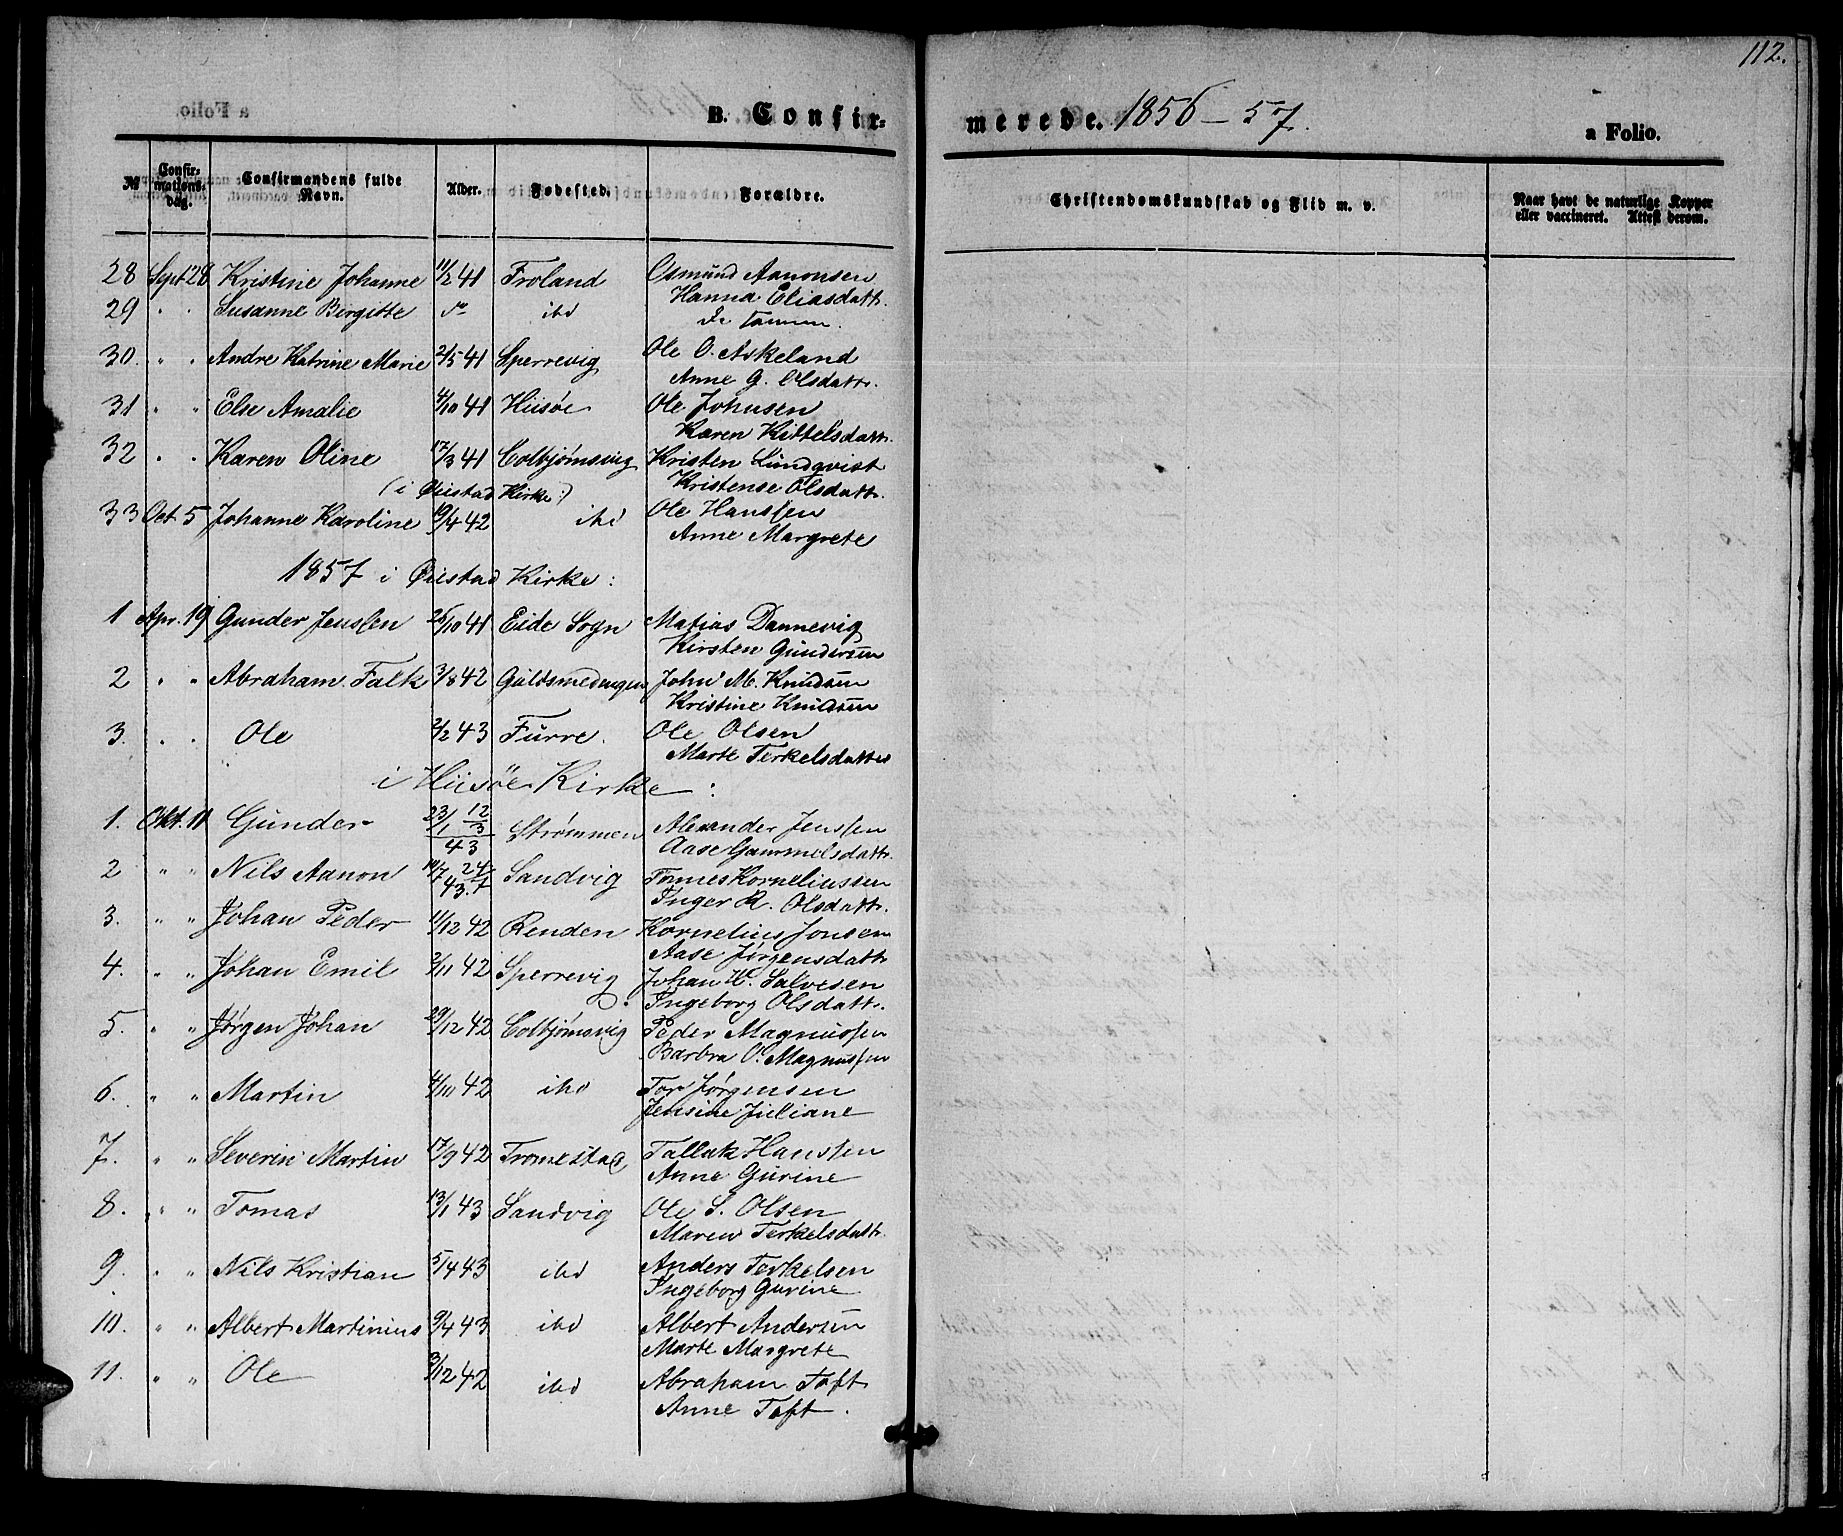 112.
B. Confir-
merede. 1856-57.
a Folio.
№ Confir-mations-dag. Confirmandens fulde Navn. Alder. Fødested. Forældre. Christendomskundskab og Flid m. v. Naar havt de naturlige Kopper eller vaccineret. Attest derom.
28 Sept. 28 Kristine Johanne 11/2 41 Froland Osmund Aanonsen
Hanna Eliasdatt.
29 " " Susanne Birgitte do ibd
de samme.
30. " " Andre Katrine Marie 2/5 41 Sperrevig Ole O. Askeland
Anne G. Olsdatt.
31 " " Else Amalie 4/10 41 Hiisöe Ole Johnsen
Karen Kittelsdatt.
32 " " Karen Oline 17/3 41 Colbjørnsvig Kristen Lundqvist
Kristense Olsdatt.
(i Øiestad Kirke:)
33 Oct. 5 Johanne Karoline 19/4 42 ibd Ole Hanssen
Anne Margrete
1857 i Øiestad Kirke:
1 Apr. 19 Gunder Jenssen 26/10 41 Eide Sogn Matias Dannevig
Kirsten Gundersen
2 " " Abraham Falk 3/8 42 Guldsmedengen John M. Knudsen
Kristine Knudsen
3. " " Ole 2/2 43 Furre. Ole Olsen
Marte Terkelsdatter
i Hiisöe Kirke:
1. Okt. 11 Gunder 23/1 12/3 43 Strømmen Alexander Jenssen
Aase Gammelsdatt.
2 " " Nils Aanon 10/7 24/7 43. Sandvig Tønnes Korneliussen
Inger R. Olsdatt.
3. " " Johan Peder 11/12 42 Renden Kornelius Jonsen
Aase Jørgensdatt.
4. " " Johan Emil 2/11 42 Sperrevig Johan W. Salvesen
Ingeborg Olsdatt.
5. " " Jørgen Johan 29/12 42 Colbjørnsvig Peder Magnussen
Barbra O. Magnussen
6. " " Martin 4/10 42 ibd Tor Jørgensen
Jensine Juliane
7. " " Severin Martin 17/9 42 Tromestad Tallak Hanssen
Anne Gurine
8. " " Tomas 13/1 43 Sandvig Ole S. Olsen
Maren Terkelsdatt.
9. " " Nils Kristian 5/4 43 ibd Anders Terkelsen
Ingeborg Gurine
10. " " Albert Martinius 9/4 43 ibd Albert Andersen
Marte Margrete
11. " " Ole 3/12 42 ibd Abraham Toft
Anne Toft.